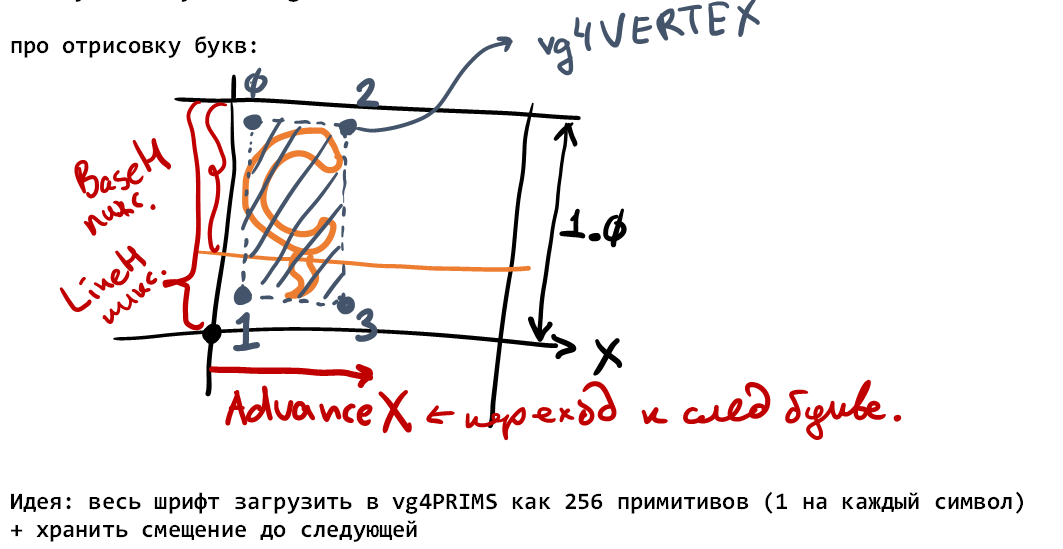 про отрисовку букв:
vg4VERTEX
0
2
BaseH
пикс.
1.0
LineH
пикс.
1
3
X
AdvanceX ← переход к след букве.
Идея: весь шрифт загрузить в vg4PRIMS как 256 примитивов (1 на каждый символ)
+ хранить смещение до следующей